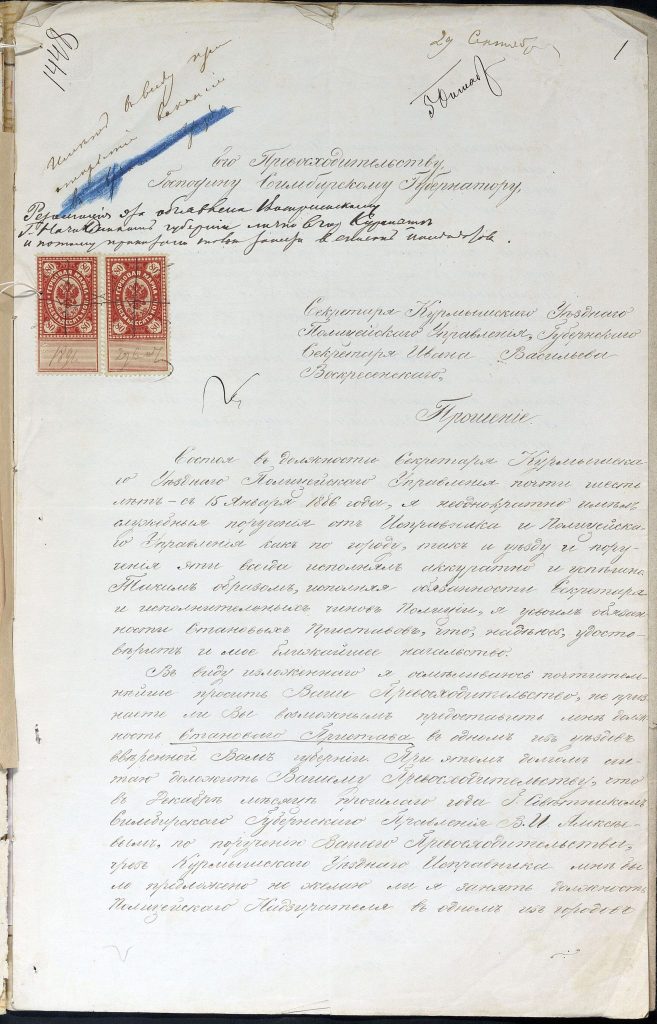 1448
29 Сентябр
1
Имѣть въ виду при
открытіи вакансіи
Его Превосходительству
Господину Симбирскому Губернатору,
Резолюція эта объявлена
Г. Начальникомъ губерніи лично въ г. Курмышѣ
и потому въ списокъ кандидатовъ.
80 ГЕРБОВАЯ МАРКА 80
80 ГЕРБОВАЯ МАРКА 80
1891
29
Секретаря Курмышскаго Уѣзднаго
Полицейскаго Управленія, Губернскаго
Секретаря Ивана Васильева
Воскресенскаго,
Прошеніе.
Состоя въ должности Секретаря Курмышска-
го Уѣзднаго Полицейскаго Управленія почти шесть
лѣтъ – съ 15 Января 1886 года, я неоднократно имѣлъ
служебныя порученія отъ Исправника и Полицейска-
го Управленія какъ по городу, такъ и уѣзду и пору-
ченія эти всегда исполнялъ аккуратно и успѣшно.
Такимъ образомъ, исполняя обязанности Секретаря
и исполнительныхъ чиновъ Полиціи, я усвоилъ обязан-
ности Становыхъ Приставовъ, что, надѣюсь, удосто-
вѣритъ и мое ближайшее начальство.
Въ виду изложеннаго я осмѣливаюсь почтитель-
нѣйше просить Ваше Превосходительство, не приз-
наете ли Вы возможнымъ предоставить мнѣ долж-
ность Становаго Пристава въ одномъ изъ уѣздовъ
ввѣренной Вамъ губерніи. При этомъ долгомъ счи-
таю доложить Вашему Превосходительству, что
въ Декабрѣ мѣсяцѣ прошлаго года Г. Совѣтникомъ
Симбирскаго Губернскаго Правленія В. И.
вымъ, по порученію Вашего Превосходительства,
чрезъ Курмышскаго Уѣзднаго Исправника мнѣ бы-
ло предложено не желаю ли я занять должность
Полицейскаго Надзирателя въ одномъ изъ городовъ